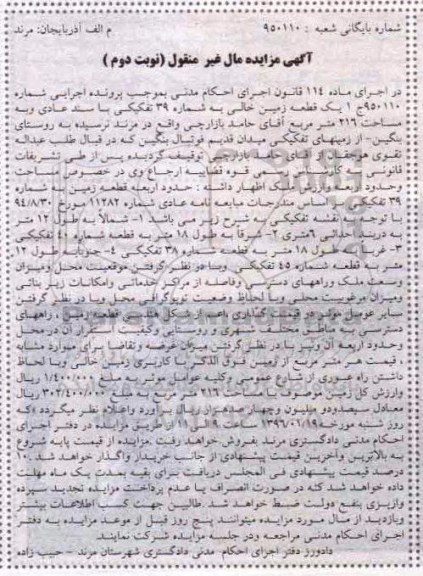 شماره بایگانی شعبه : ۹۵۰۱۱۰ م الف آذربایجان: مرند
آگهی مزایده مال غیر منقول (نوبت دوم )
در اجرای ماده ۱۱۴ قانون اجرای احکام مدنی بموجب پرونده اجرایی شماره
۹۵۰۱۱۰ج۱ یک قطعه زمین خالی به شماره ۳۹ تفکیکی با سند عادی وبه
مساحت ۲۱۶ متر مربع آقای حامد بازارچی واقع در مرند نرسیده به روستای
بنگین- از زمینهای تفکیکی میدان قدیم فوتبال بنگین که در قبال طلب عبداله
تقوی هوجقان از آقای حامد بازارچی توقیف گردیده پس از طی تشریفات
قانونی به کارشناس رسمی قوه قضاییه ارجاع وی در خصوص مساحت
وحدود اربعه وارزش ملک اظهار داشته : حدود اربعه قطعه زمین به شماره
۳۹ تفکیکی بر اساس مندرجات مبایعه نامه عادی شماره ۱۱۲۸۲ مورخ ۹۴/۸/۳۰
با توجه به نقشه تفکیکی به شرح زیر می باشد ۱- شمالاً به طول ۱۲ متر
به دربند احداثی ۶متری ۲- شرقاً به طول ۱۸ متر به قطعه شماره ۴۰ تفکیکی
۳- غرباً به طول ۱۸ متر به قطعه شماره ۳۸ تفکیکی ۴- جنوباً به طول ۱۲
متر به قطعه شماره ۴۵ تفکیکی وبا در نظر گرفتن موقعیت محل ومیزان
وسعت ملک وراههای دسترسی وفاصله از مراکز خدماتی وامکانات زیر بنائی
ومیزان مرغوبیت محلی وبا لحاظ وضعیت توپوگرافی محل وبا در نظر گرفتن
سایر عوامل موثر در قیمت گذاری باعم از شکل هندسی قطعه زمین ، راههای
دسترسی به مناطق مختلف شهری و روستایی وکیفیت استقرار آن در محل
وحدود اربعه آن ونیز با در نظر گرفتن میزان عرضه وتقاضا برای موارد مشابه
، قیمت هر متر مربع از زمین فوق الذکر با کاربری زمین خالی وبا لحاظ
داشتن راه عبوری از شارع عمومی وکلیه عوامل موثر به مبلغ ۱/۴۰۰/۰۰۰ ریال
وارزش کل زمین موصوف با مساحت ۲۱۶ متر مربع به مبلغ ۳۰۲/۴۰۰/۰۰۰ ریال
معادل سیصدودو میلیون وچهارصدهزار ریال برآورد واعلام نظر میگردد »که
روز شنبه مورخه۱۳۹۶/۰۱/۱۹ ساعت ۹ الی ۱۱ از طریق مزایده در دفتر اجرای
احکام مدنی دادگستری مرند بفروش خواهد رفت .مزایده از قیمت پایه شروع
به بالاترین وآخرین قیمت پیشنهادی از جانب خریدار واگذار خواهد شد .۱۰
درصد قیمت پیشنهادی فی المجلس دریافت برای بقیه بمدت یک ماه مهلت
داده خواهد شد که در صورت انصراف یا عدم پرداخت مزایده تجدید سپرده
واریزی بنفع دولت ضبط خواهد شد .طالبین جهت کسب اطلاعات بیشتر
وبازدید از مال مورد مزایده میتوانند پنج روز قبل از موعد مزایده به دفتر
اجرای احکام مدنی مراجعه ودر جلسه مزایده شرکت نمایند.
دادورز دفتر اجرای احکام مدنی دادگستری شهرستان مرند - حبیب زاده